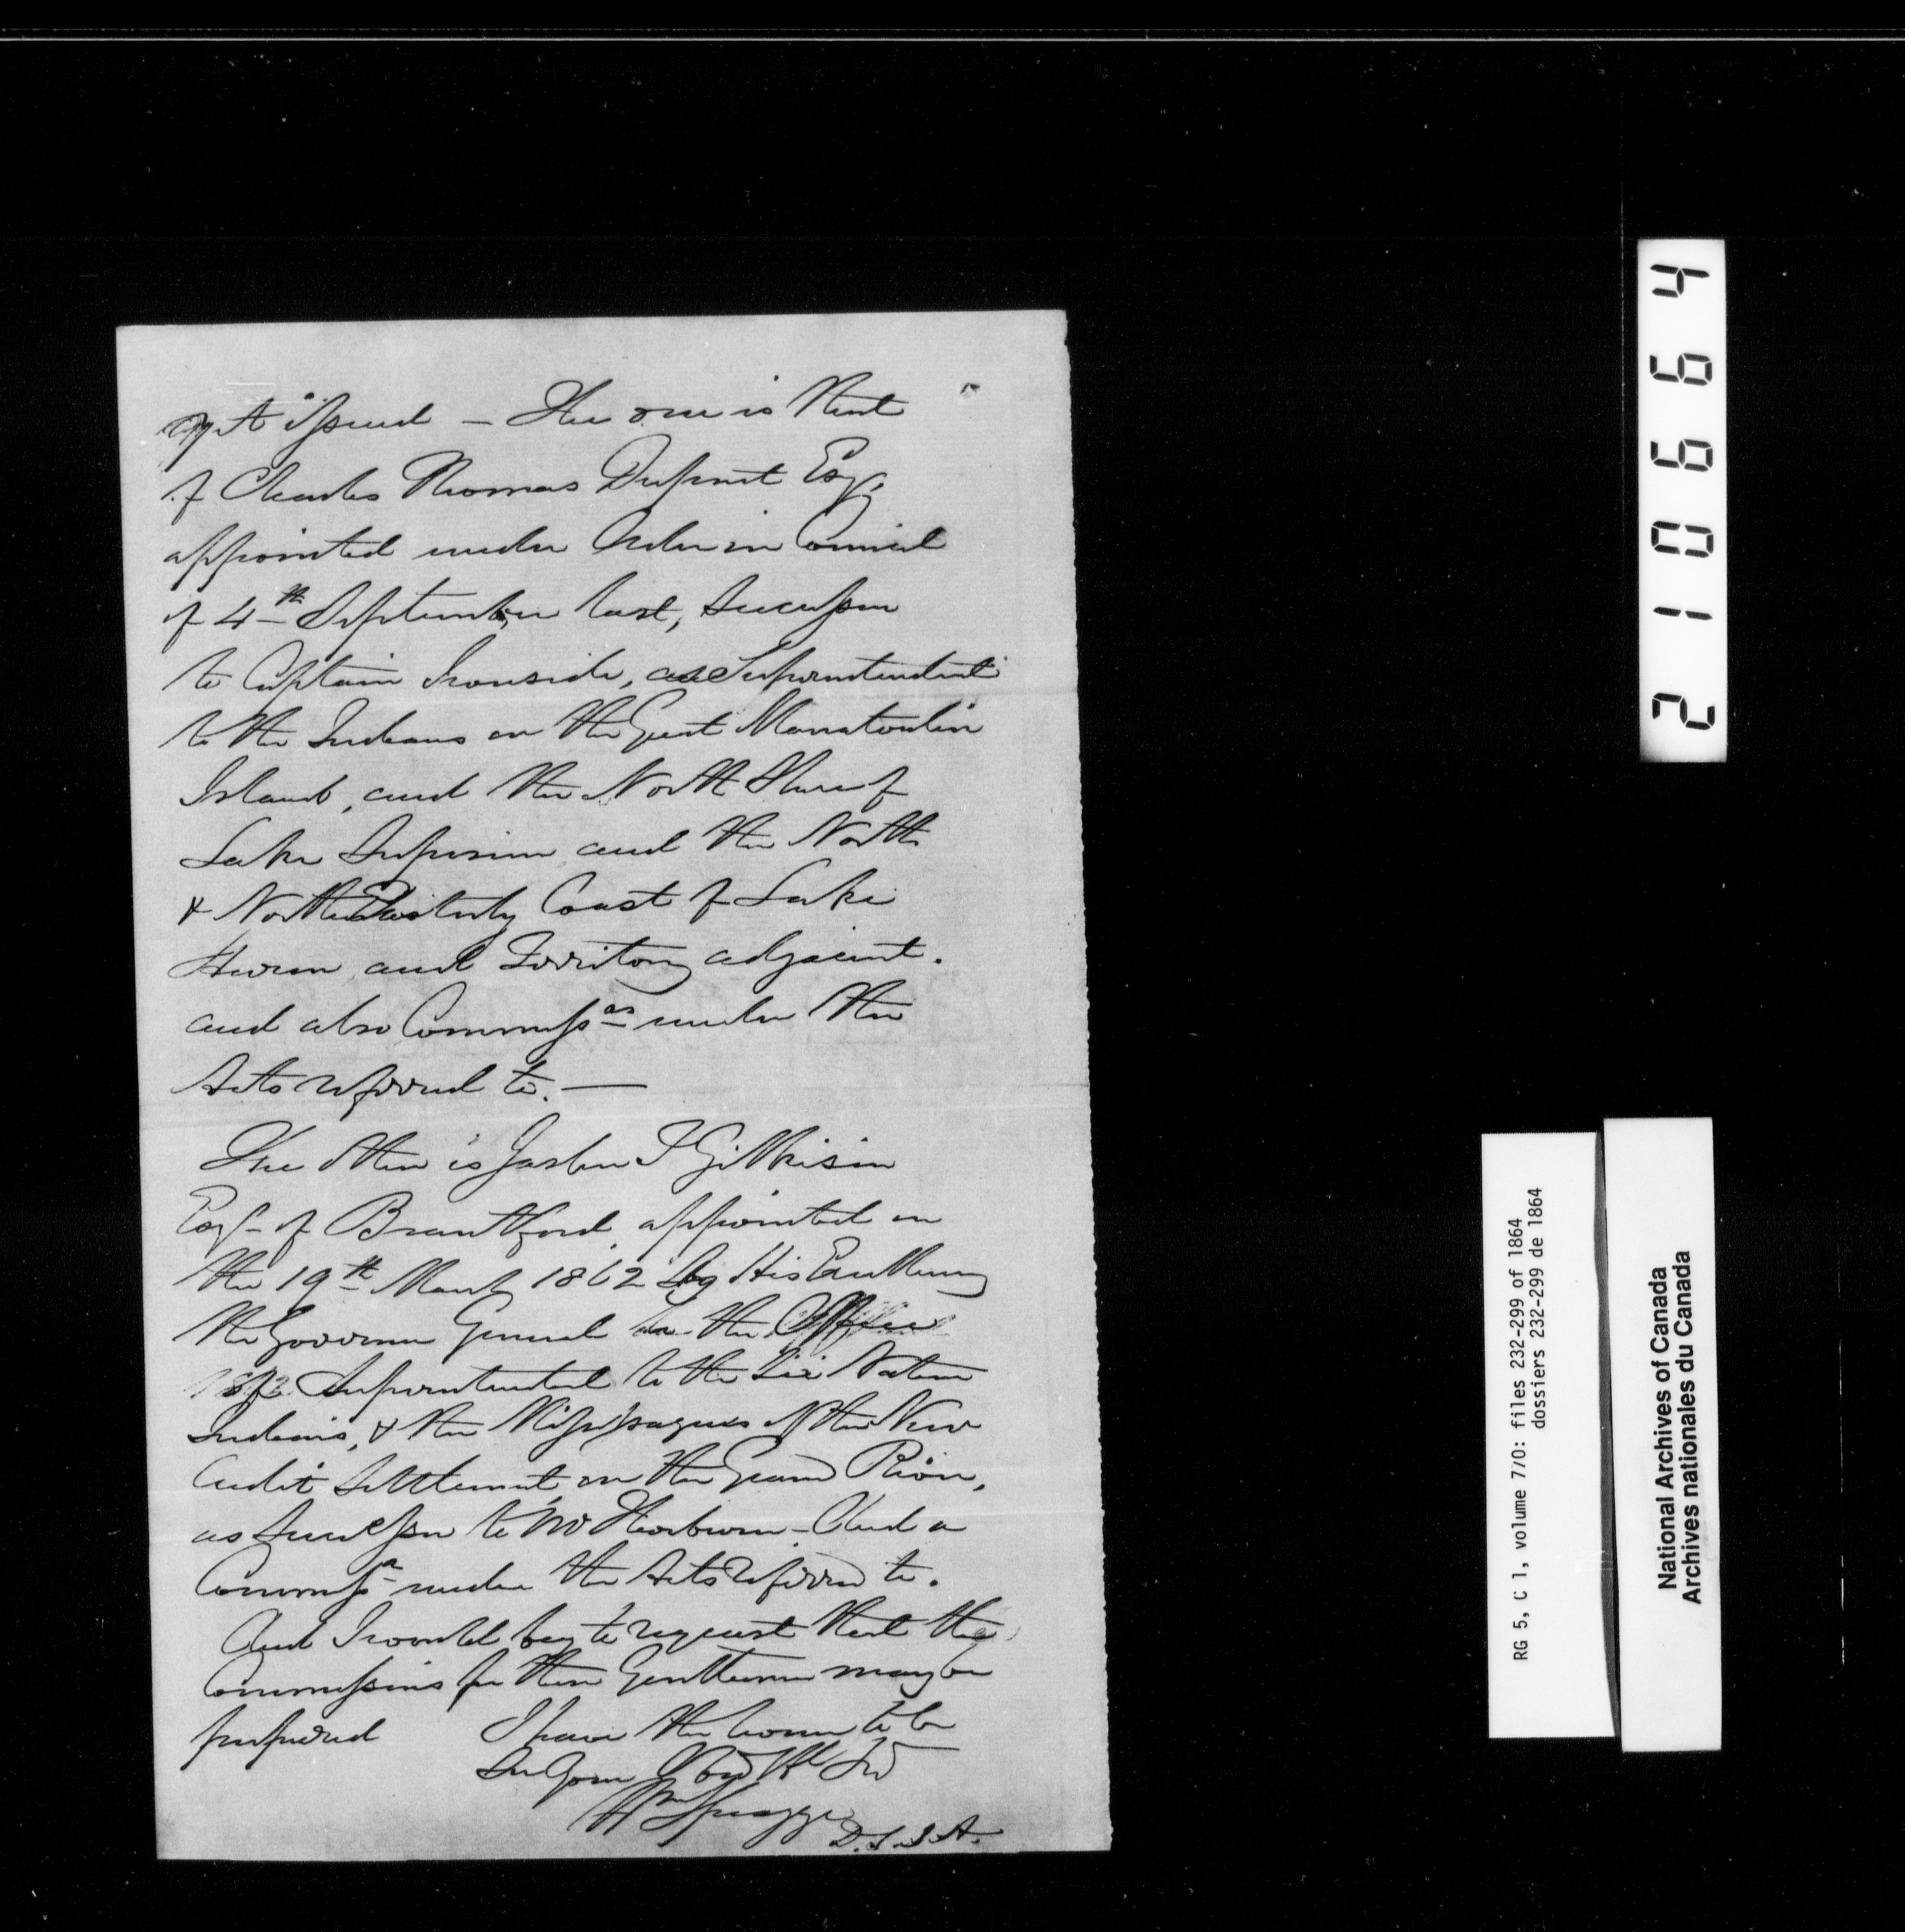 yet issued — The one is that
of Charles Thomas Dupont Esq.
appointed under Order in Council
of 4th September last, successor
to Captain Ironside, as Superintendent
to the Indians on the Great Manatoulin
Island, and the North Shore of
Lake Superior and the North
& North Easterly Coast of Lake
Huron and Territory adjacent.
and also Commissr under the
Acts referred to. —
The other is Jasper T Gilkison
Esqr of Brantford, appointed on
the 19th March 1862 by His Excellency
the Governor General to the Office
of Superintendent to the Six Nation
Indians, & the Missisagues of the New
Credit Settlement, on the Grand River,
as Successor to Mr Thorburn - And a
Commissr under the Acts referred to.
And I would beg to request that the
Commissions for these Gentlemen may be
prepared I have the honor to be
Sir Your Obdt Hl St
Wm Spragge
D.S.I.A.
210664
RG 5, C 1, volume 7/0: files 232-299 of 1864
dossiers 232-299 de 1864
National Archives of Canada
Archives nationales du Canada